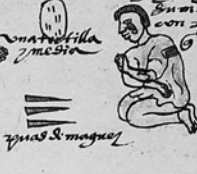 una tortilla
y media
con
puas de maguey